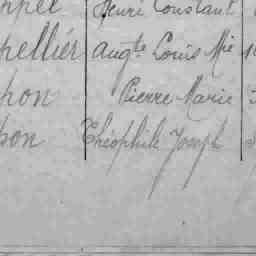 ppel Henri Constant
pellier Augte Louis Mie
phon Pierre Marie
pon Théophile Joseph